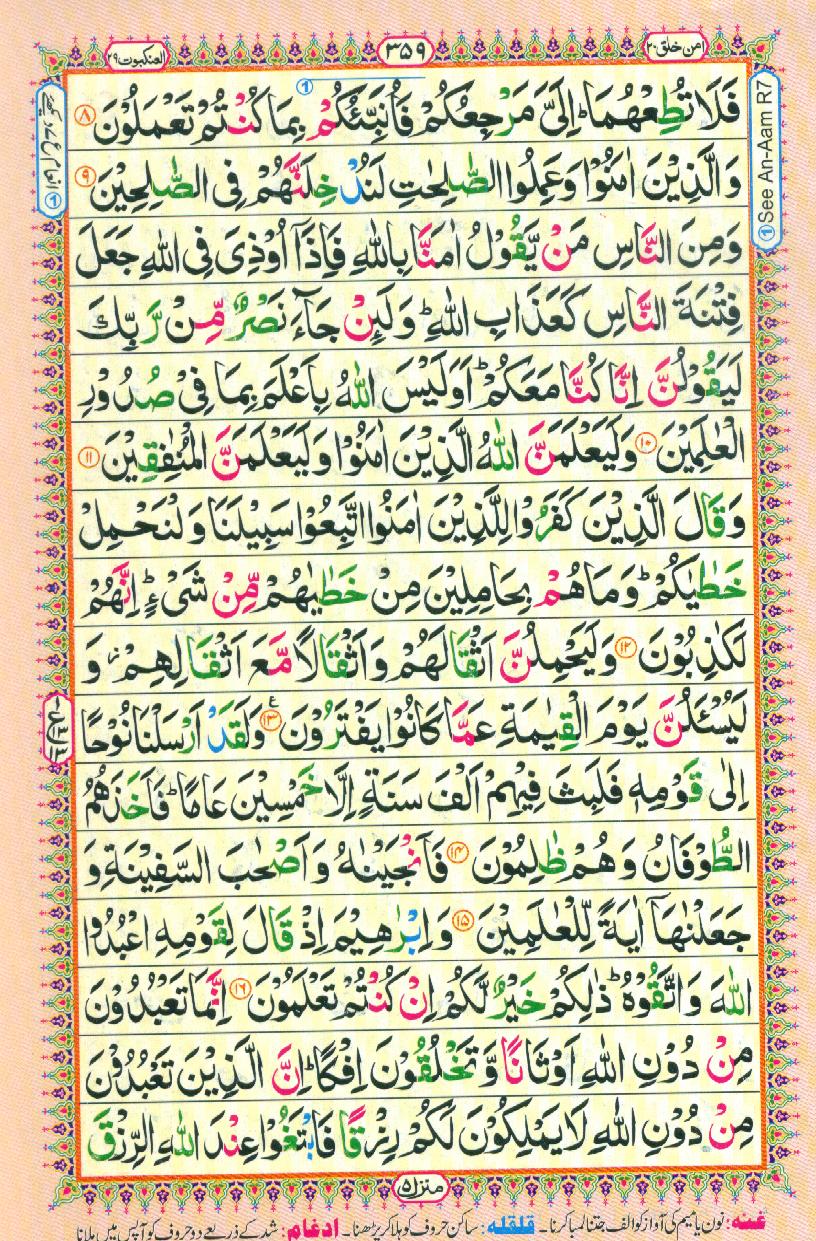 امن خلق ۲۰
۳۵۹
العنکبوت ۲۹
فَلَا تُطِعْهُمَا ؕ اِلَیَّ مَرْجِعُكُمْ فَاُنَبِّئُكُمْ بِمَا كُنْتُمْ تَعْمَلُوْنَ ۸
وَ الَّذِیْنَ اٰمَنُوْا وَ عَمِلُوا الصّٰلِحٰتِ لَنُدْخِلَنَّهُمْ فِی الصّٰلِحِیْنَ ۹
وَ مِنَ النَّاسِ مَنْ یَّقُوْلُ اٰمَنَّا بِاللّٰهِ فَاِذَاۤ اُوْذِیَ فِی اللّٰهِ جَعَلَ
فِتْنَةَ النَّاسِ كَعَذَابِ اللّٰهِ ؕ وَ لَىِٕنْ جَآءَ نَصْرٌ مِّنْ رَّبِّكَ
لَیَقُوْلُنَّ اِنَّا كُنَّا مَعَكُمْ ؕ اَوَ لَیْسَ اللّٰهُ بِاَعْلَمَ بِمَا فِیْ صُدُوْرِ
الْعٰلَمِیْنَ ۱۰ وَ لَیَعْلَمَنَّ اللّٰهُ الَّذِیْنَ اٰمَنُوْا وَ لَیَعْلَمَنَّ الْمُنٰفِقِیْنَ ۱۱
وَ قَالَ الَّذِیْنَ كَفَرُوْا لِلَّذِیْنَ اٰمَنُوا اتَّبِعُوْا سَبِیْلَنَا وَ لْنَحْمِلْ
خَطٰیٰكُمْ ؕ وَ مَا هُمْ بِحٰمِلِیْنَ مِنْ خَطٰیٰهُمْ مِّنْ شَیْءٍ ؕ اِنَّهُمْ
لَكٰذِبُوْنَ ۱۲ وَ لَیَحْمِلُنَّ اَثْقَالَهُمْ وَ اَثْقَالًا مَّعَ اَثْقَالِهِمْ ؗ وَ
لَیُسْـَٔلُنَّ یَوْمَ الْقِیٰمَةِ عَمَّا كَانُوْا یَفْتَرُوْنَ ۱۳ ع وَ لَقَدْ اَرْسَلْنَا نُوْحًا
اِلٰی قَوْمِهٖ فَلَبِثَ فِیْهِمْ اَلْفَ سَنَةٍ اِلَّا خَمْسِیْنَ عَامًا ؕ فَاَخَذَهُمُ
الطُّوْفَانُ وَ هُمْ ظٰلِمُوْنَ ۱۴ فَاَنْجَیْنٰهُ وَ اَصْحٰبَ السَّفِیْنَةِ وَ
جَعَلْنٰهَاۤ اٰیَةً لِّلْعٰلَمِیْنَ ۱۵ وَ اِبْرٰهِیْمَ اِذْ قَالَ لِقَوْمِهِ اعْبُدُوا
اللّٰهَ وَ اتَّقُوْهُ ؕ ذٰلِكُمْ خَیْرٌ لَّكُمْ اِنْ كُنْتُمْ تَعْلَمُوْنَ ۱۶ اِنَّمَا تَعْبُدُوْنَ
مِنْ دُوْنِ اللّٰهِ اَوْثَانًا وَّ تَخْلُقُوْنَ اِفْكًا ؕ اِنَّ الَّذِیْنَ تَعْبُدُوْنَ
مِنْ دُوْنِ اللّٰهِ لَا یَمْلِكُوْنَ لَكُمْ رِزْقًا فَابْتَغُوْا عِنْدَ اللّٰهِ الرِّزْقَ
منزل ۵
غنه: نون یا میم کی آواز کو الف جتنا لمبا کرنا۔ قلقله: ساکن حروف کو ہلا کر پڑھنا۔ ادغام: شد کے ذریعے دو حروف کو آپس میں ملانا
① See An-Aam R7